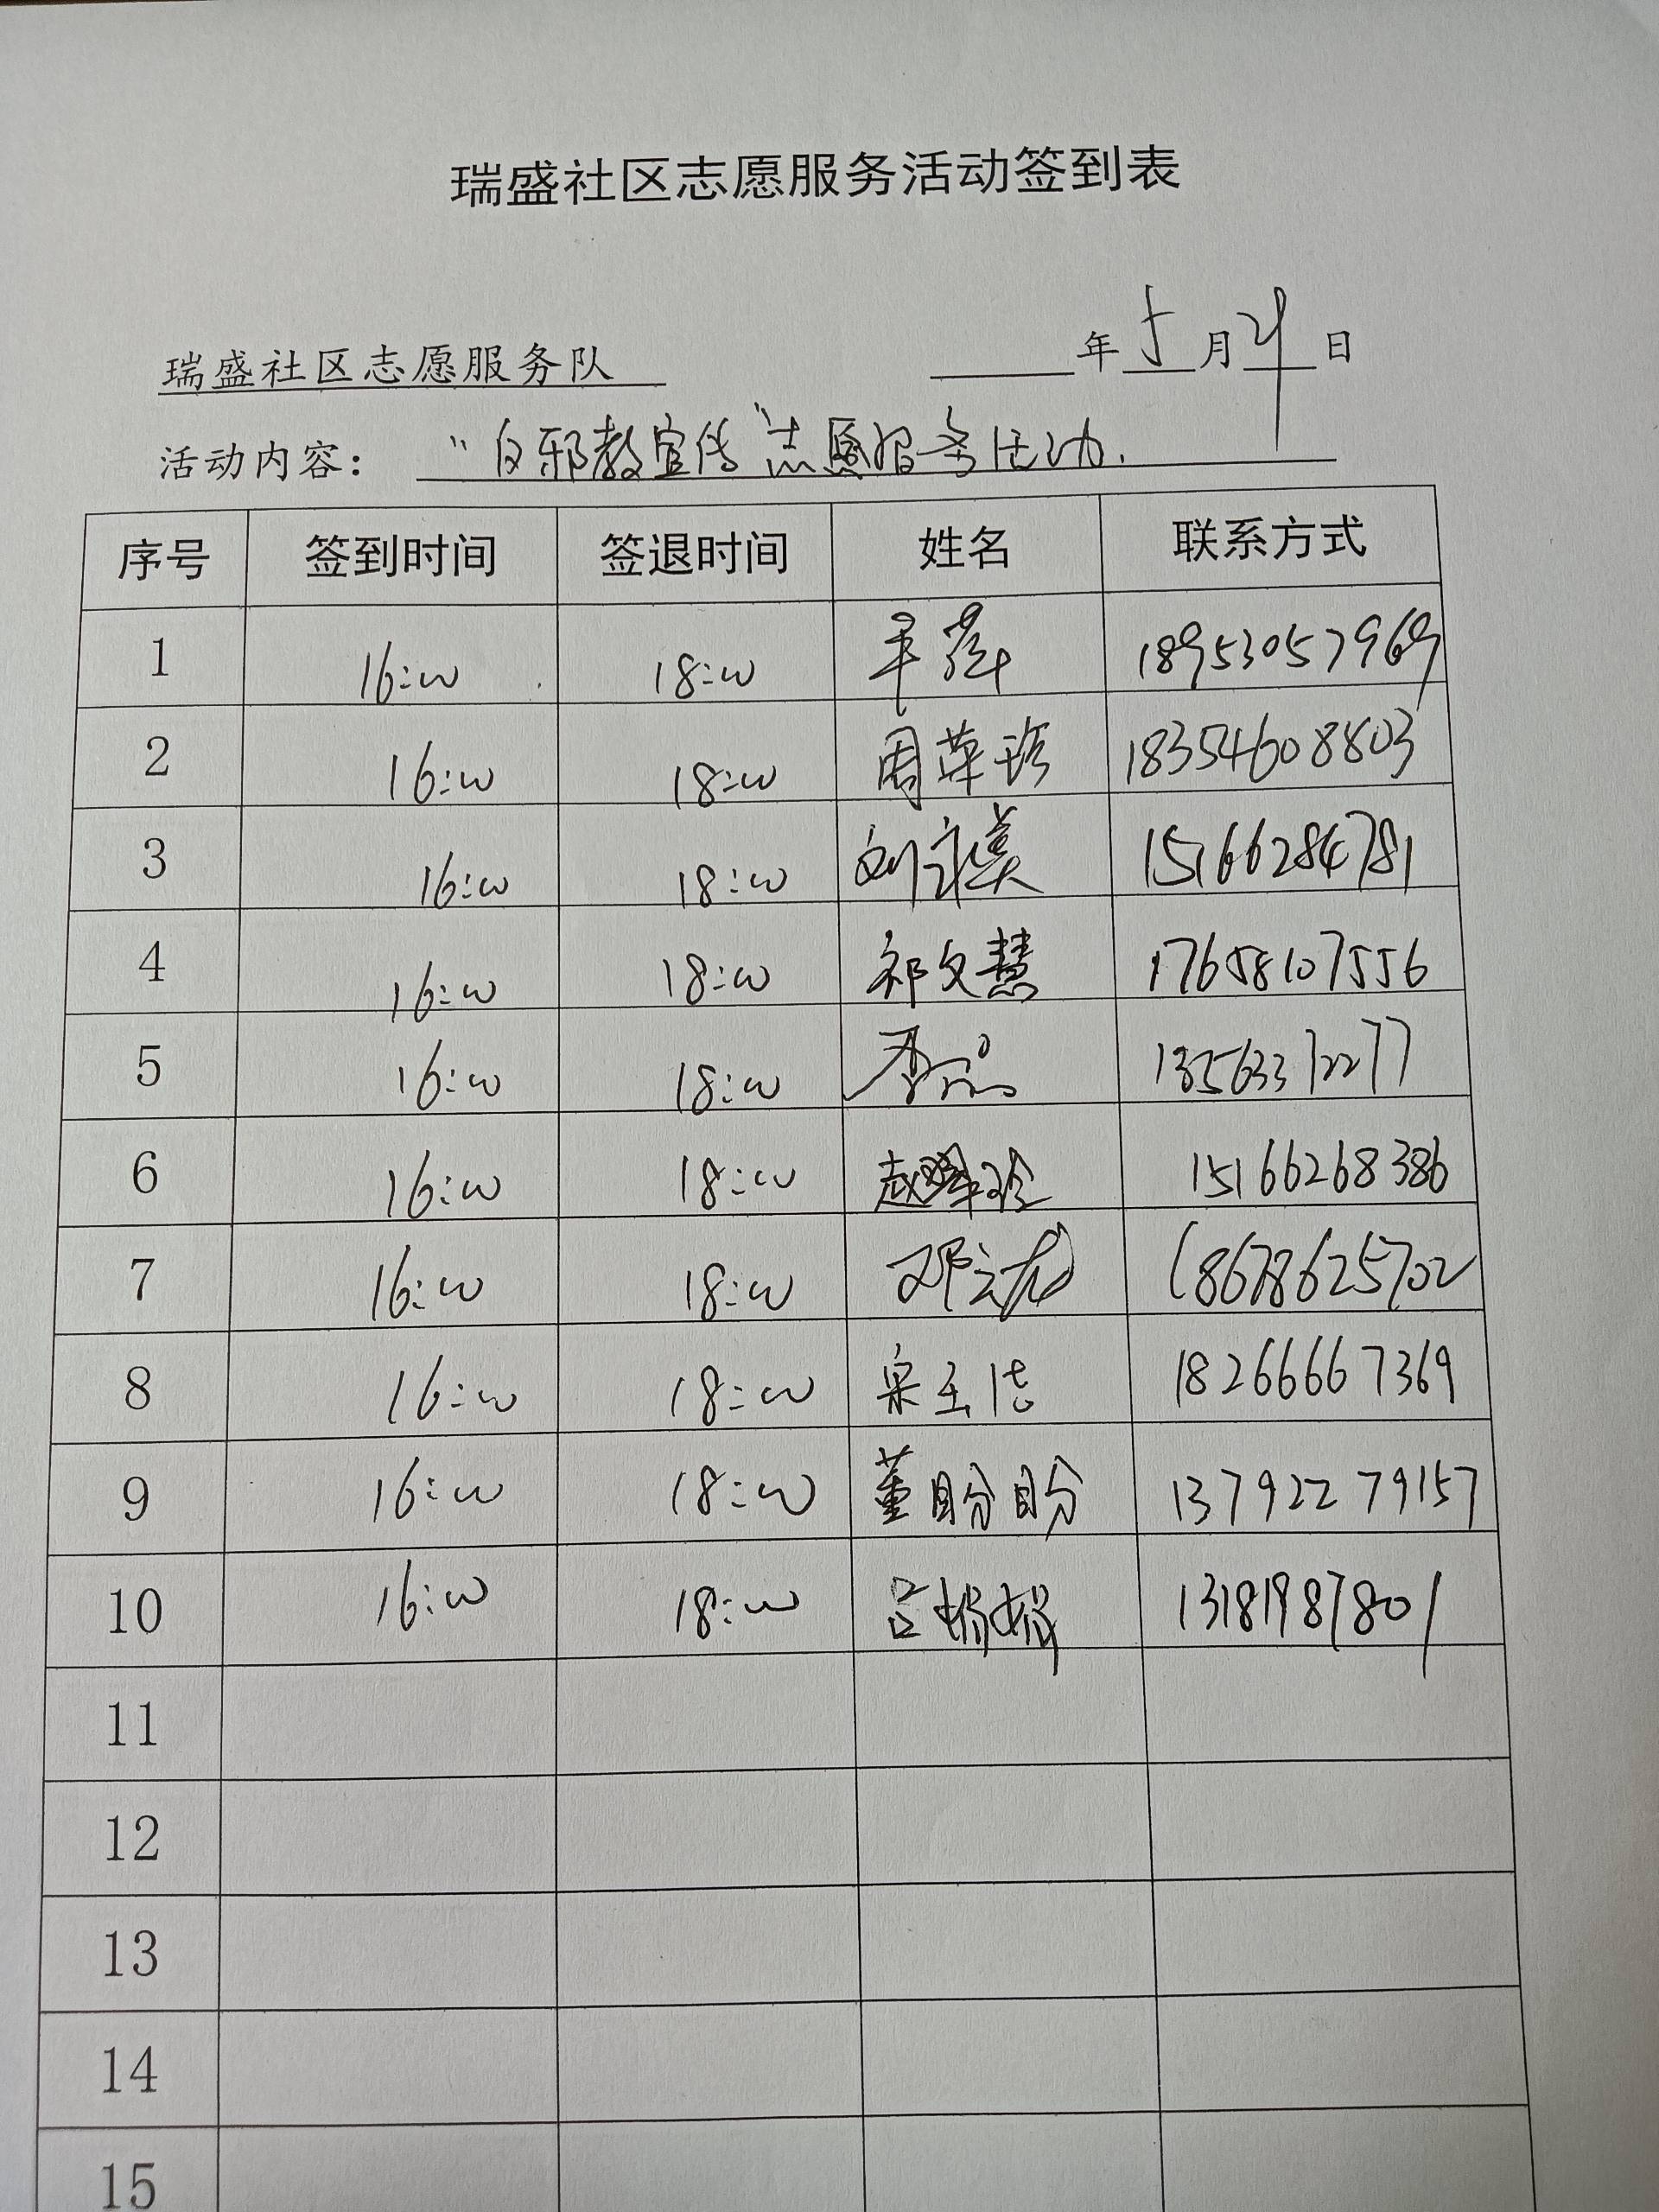 瑞盛社区志愿服务活动签到表
瑞盛社区志愿服务队 年5月21日
活动内容: "反邪教宣传"志愿服务活动.
序号 签到时间 签退时间 姓名 联系方式
1 16:00 18:00 18953057969
2 16:00 18:00 周萍珍 18354608803
3 16:00 18:00 刘永美 15166284781
4 16:00 18:00 祁文慧 17658107556
5 16:00 18:00 李 13563372277
6 16:00 18:00 赵 15166268386
7 16:00 18:00 邓云龙 18678625702
8 16:00 18:00 宋玉洁 18266667369
9 16:00 18:00 董盼盼 13792279157
10 16:00 18:00 吕娟娟 13181987801
11
12
13
14
15